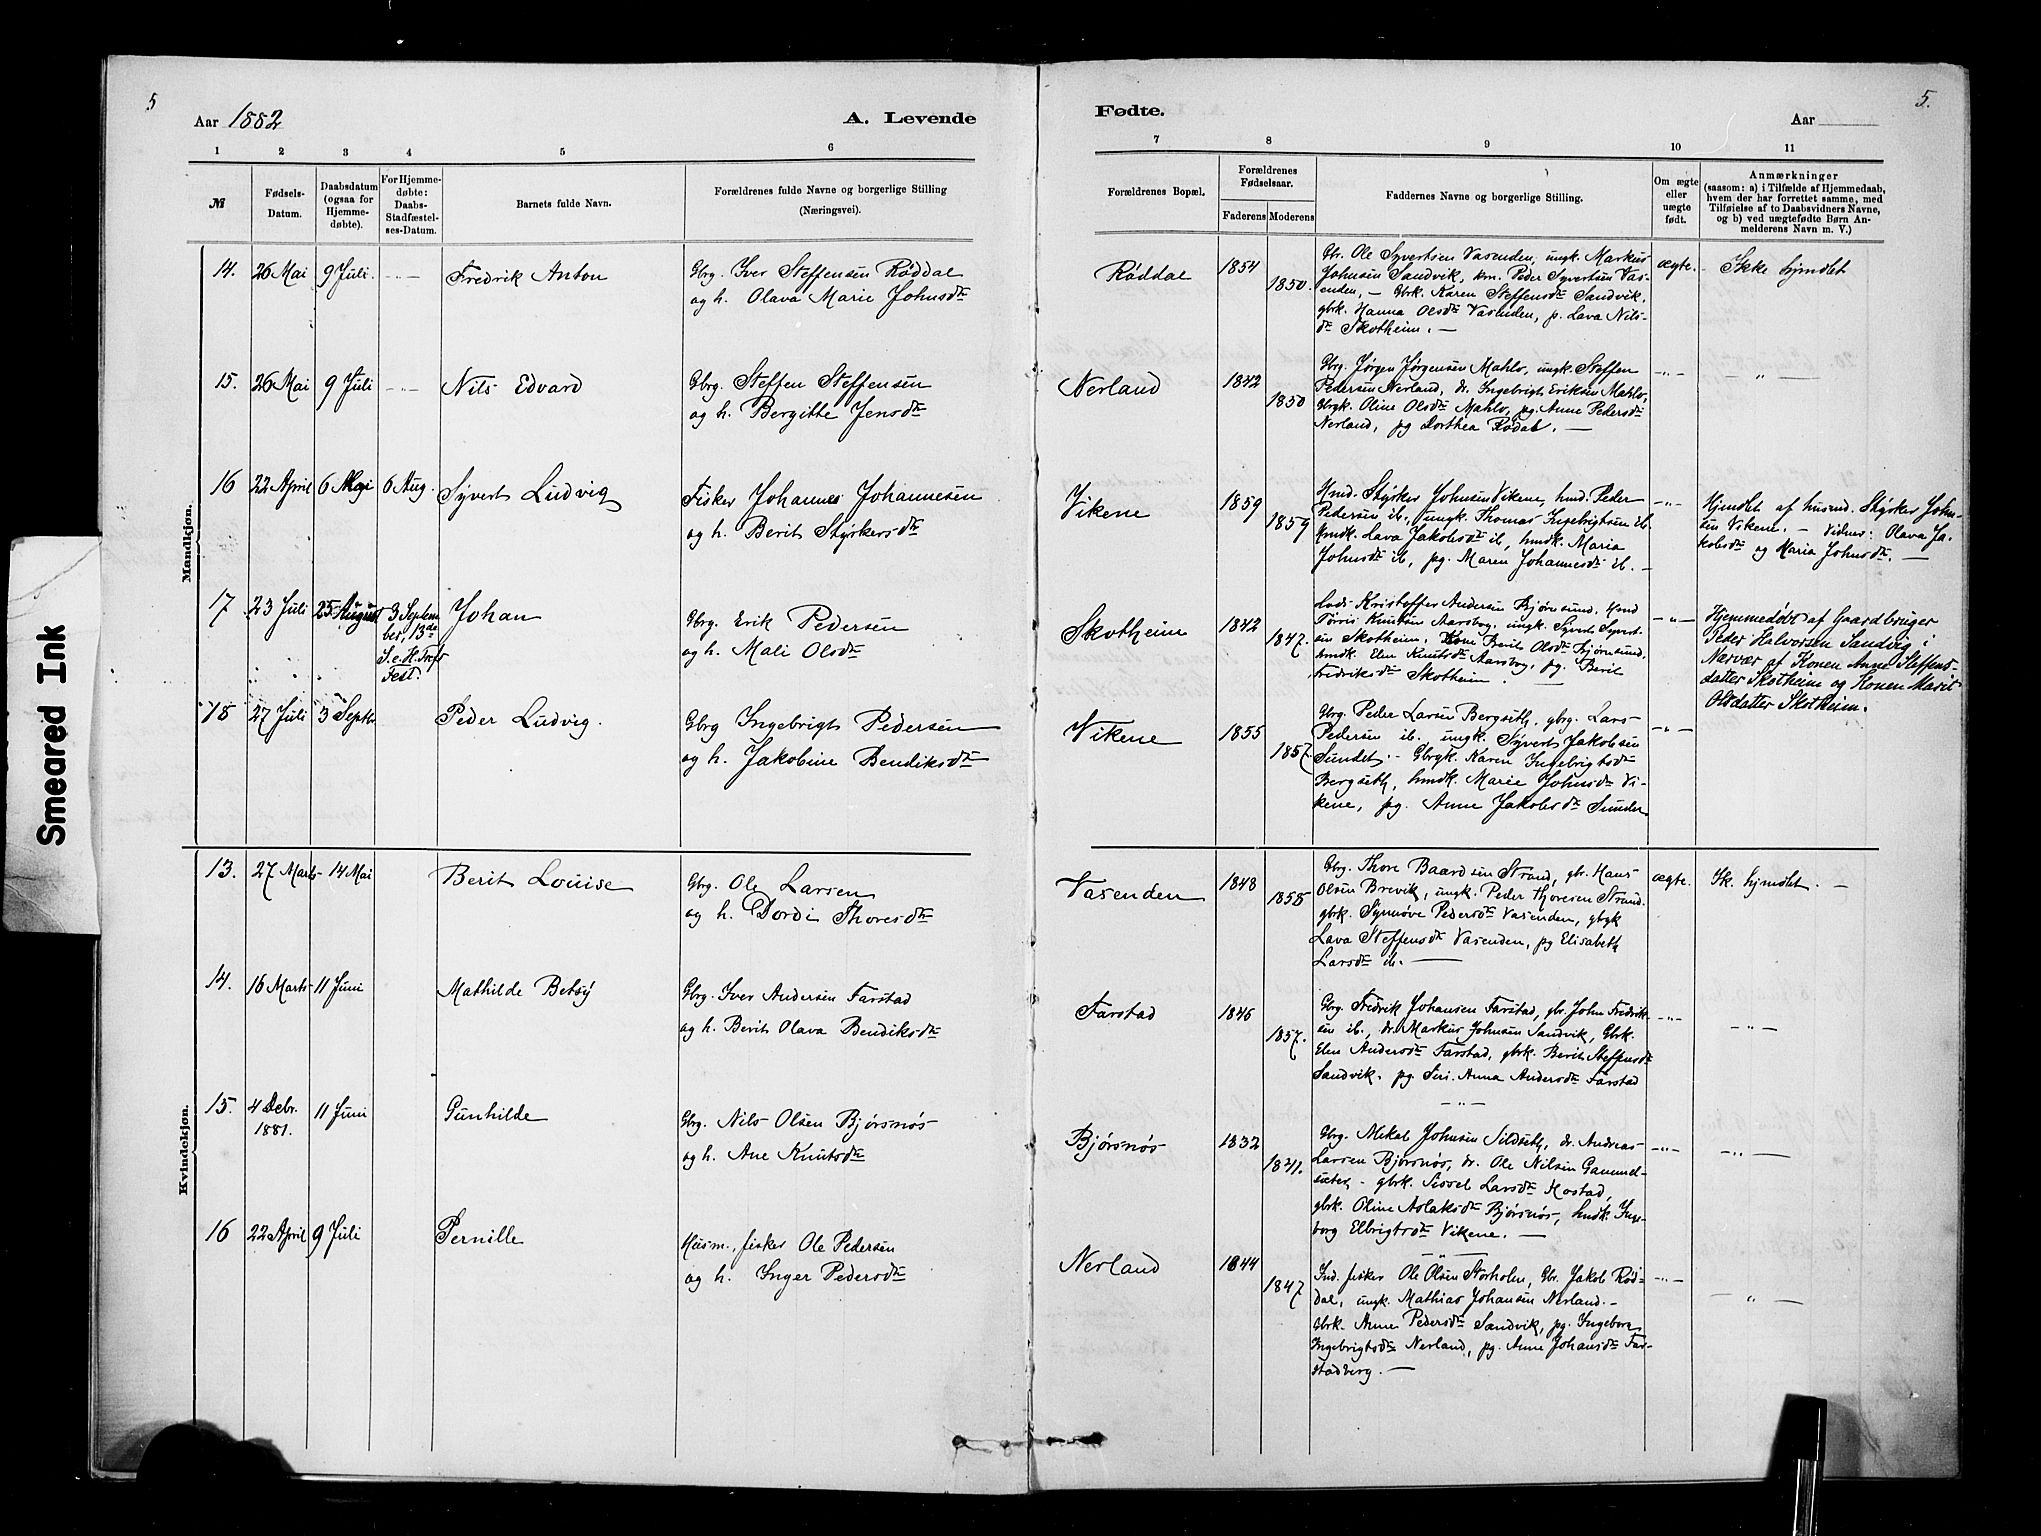 5
5.
Aar 1882
A. Levende
Fødte.
Aar
1 2 3 4 5 6
7 8 9 10 11
№
Fødsels-
Datum.
Daabsdatum
(ogsaa for
Hjemme-
døbte).
For Hjemme-
døbte:
Daabs-
Stadfæstel-
ses-Datum.
Barnets fulde Navn.
Forældrenes fulde Navne og borgerlige Stilling
(Næringsvei).
Forældrenes Bopæl.
Forældrenes
Fødselsaar.
Faderens Moderens
Faddernes Navne og borgerlige Stilling.
Om ægte
eller
uægte
født.
Anmærkninger
(saasom: a) i Tilfælde af Hjemmedaab,
hvem der har forrettet samme, med
Tilføielse af to Daabsvidners Navne,
og b) ved uægtefødte Børn An-
melderens Navn m. V.)
Mandkjøn.
14. 26 Mai 9 Juli -"- Fredrik Anton
Gbrg. Iver Steffensen Røddal
og h. Olava Marie Johnsdtr
Røddal 1854 1850.
Gbr. Ole Syvertsen Vasenden, ungk. Markus
Johnsen Sandvik, krn. Peder Syvertsen Vas-
enden, – Gbrk. Karen Steffensdtr Sandvik,
gbrk. Hanna Olsdtr Vasenden, p. Lava Nils-
dtr Skotheim. –
ægte. Ikke hjmdbt
15. 26 Mai 9 Juli -"- Nils Edvard
Gbrg. Steffen Steffensen
og h. Bergitte Jensdtr
Nerland 1842 1850
Gbrg. Jørgen Jørgensen Mahlo, ungk. Steffen
Pedersen Nerland, dr. Ingebrigt Eriksen Mahlo,
Gbrgk. Oline Olsdtr Mahlo, pg. Anne Pedersdtr
Nerland, pg Dorthea Rødal. –
-"- – " –
16 22 April 6 Mai 6 Aug. Syvert Ludvig
Fisker Johannes Johannesen
og h. Berit Styrkersdtr
Vikene 1859 1859
Hmd. Styrker Johnsen Vikene, hmd. Peder
Pedersen ib., ungk. Thomas Ingebrigtsen ib.
Hmdk. Lava Jakobsdtr ib, hmdk. Maria
Johnsdtr ib, pg. Maren Johannesdtr ib. –
-"-
Hjemdbt af husmd. Styrker John-
sen Vikene. – Vidner: Olava Ja-
kobsdtr og Maria Johnsdtr. –
17 23 Juli 25 August 3 Septem
ber, 13de
S. e. H. Trefs
Fest. Johan
Gbrg. Erik Pedersen
og h. Mali Olsdtr
Skotheim 1842 1847.
Lods Kristoffer Andersen Bjørnsund, Hmd
Tørris Knutsen Aarsbog, ungk. Syvert Syvert-
sen Skotheim, Kone Berit Olsdtr Bjørnsund,
hmdk. Elen Knutsdtr Aarsbog, pg. Berit
Fredriksdtr Skotheim. –
-"-
Hjemmedøbt af Gaardbruger
Peder Halvorsen Sandvig i
Nærvær af Konen Anne Steffens-
datter Skotheim og Konen Marit
Olsdatter Skotheim.
18 27 Juli 3 Septr. Peder Ludvig.
Gbrg Ingebrigt Pedersen
og h. Jakobine Bendiksdtr
Vikene 1855 1857.
Gbrg. Peder Larsen Bergseth, gbrg. Lars
Pedersen ib. ungk. Syvert Jakobsen
Sundet. – Gbrgk. Karen Ingebrigtsdtr
Bergseth, hmdk. Marie Johnsdtr Vi-
kene, pg. Anne Jakobsdtr Sundet
-"-
Kvindekjøn.
13. 27 Marts 14 Mai Berit Louise
Gbrg. Ole Larsen
og h. Dordi Thoresdtr
Vasenden 1848 1858
Gbrg. Thore Baardsen Strand, gbr. Hans
Olsen Brevik, ungk. Peder Thoresen Strand.
gbrk. Synnøve Pedersdtr Vasenden, gbrgk
Lava Steffensdtr Vasenden, pg Elisabeth
Larsdtr ib. –
ægte. Ik. hjmdbt. –
14. 16 Marts 11 Juni Mathilde Betsy
Gbrg. Iver Andersen Farstad
og h. Berit Olava Bendiksdtr
Farstad 1846 1857.
Gbrg. Fredrik Johansen Farstad, gbr. John Fredrik-
sen ib., dr. Markus Johnsen Sandvik, Gbrk.
Elen Andersdtr Farstad, gbrk. Berit Steffensdtr
Sandvik. pg. Siri Anna Andersdtr Farstad
– " –
-"- – " –
15. 4 Decbr.
1881. 11 Juni Gunhilde
Gbrg. Nils Olsen Bjørsnøs
og h. Ane Knutsdtr
Bjørsnøs 1832 1841.
Gbrg. Mikal Johnsen Sildseth, dr. Andreas
Larsen Bjørsnøs, dr. Ole Nilsen Gammel-
sæter, – gbrk. Sissel Larsdtr Mostad,
gbrk. Oline Aslaksdtr Bjørsnøs, hmdk. Inge-
borg Elbrigtsdtr Vikene. –
– " –
-"- – " –
16 22 April 9 Juli Pernille
Husm., fisker Ole Pedersen
og h. Inger Pedersdtr
Nerland 1844 1847
Ind. fisker Ole Olsen Storholm, Gbr. Jakob Rød-
dal, ungk. Mathias Johansen Nerland. –
Gbrk. Anne Pedersdtr Sandvik, pg. Ingeborg
Ingebrigtsdtr Nerland, pg. Anne Johansdtr Far-
stadberg. –
-"- – " –
Smeared Ink